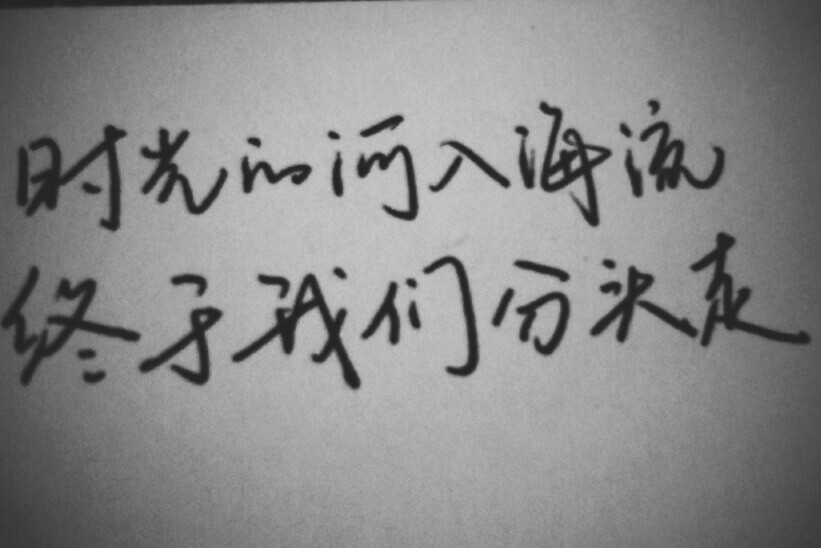 时光的河入海流
终于我们分头走